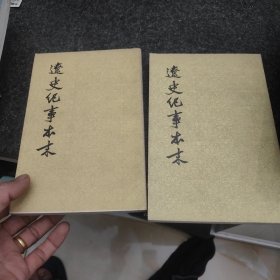 遼史紀事本末
遼史紀事本末